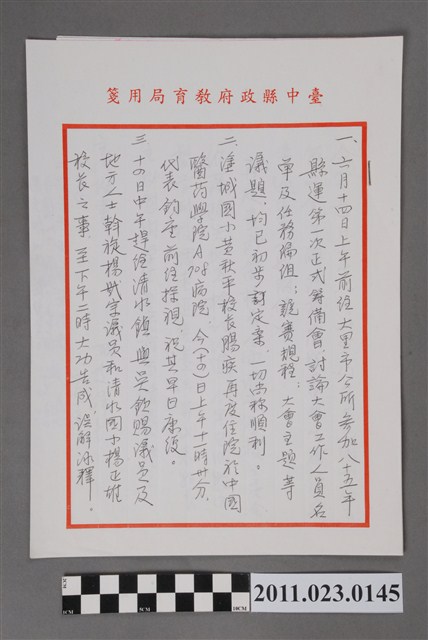 臺中縣政府教育局用箋
一、六月十四日上午前往大里市公所參加八十五年
縣運第一次正式籌備會討論大會工作人員名
單及任務編組；競賽規程；大會主題等
議題，均已初步訂定案，一切尚稱順利。
二、塗城國小黃秋平校長腸疾再度住院於中國
醫药學院A708病院，今(十四)日上午十一時卅分，
代表鈞座前往探視，祝其早日康復。
三、十四日中午趕往清水鎮與吳欽賜議員及
地方人士斡旋楊 議員和清水國小楊正雄
校長之事至下午二時大功告成，誤解冰釋。
1CM
5CM
10CM
2011.023.0145